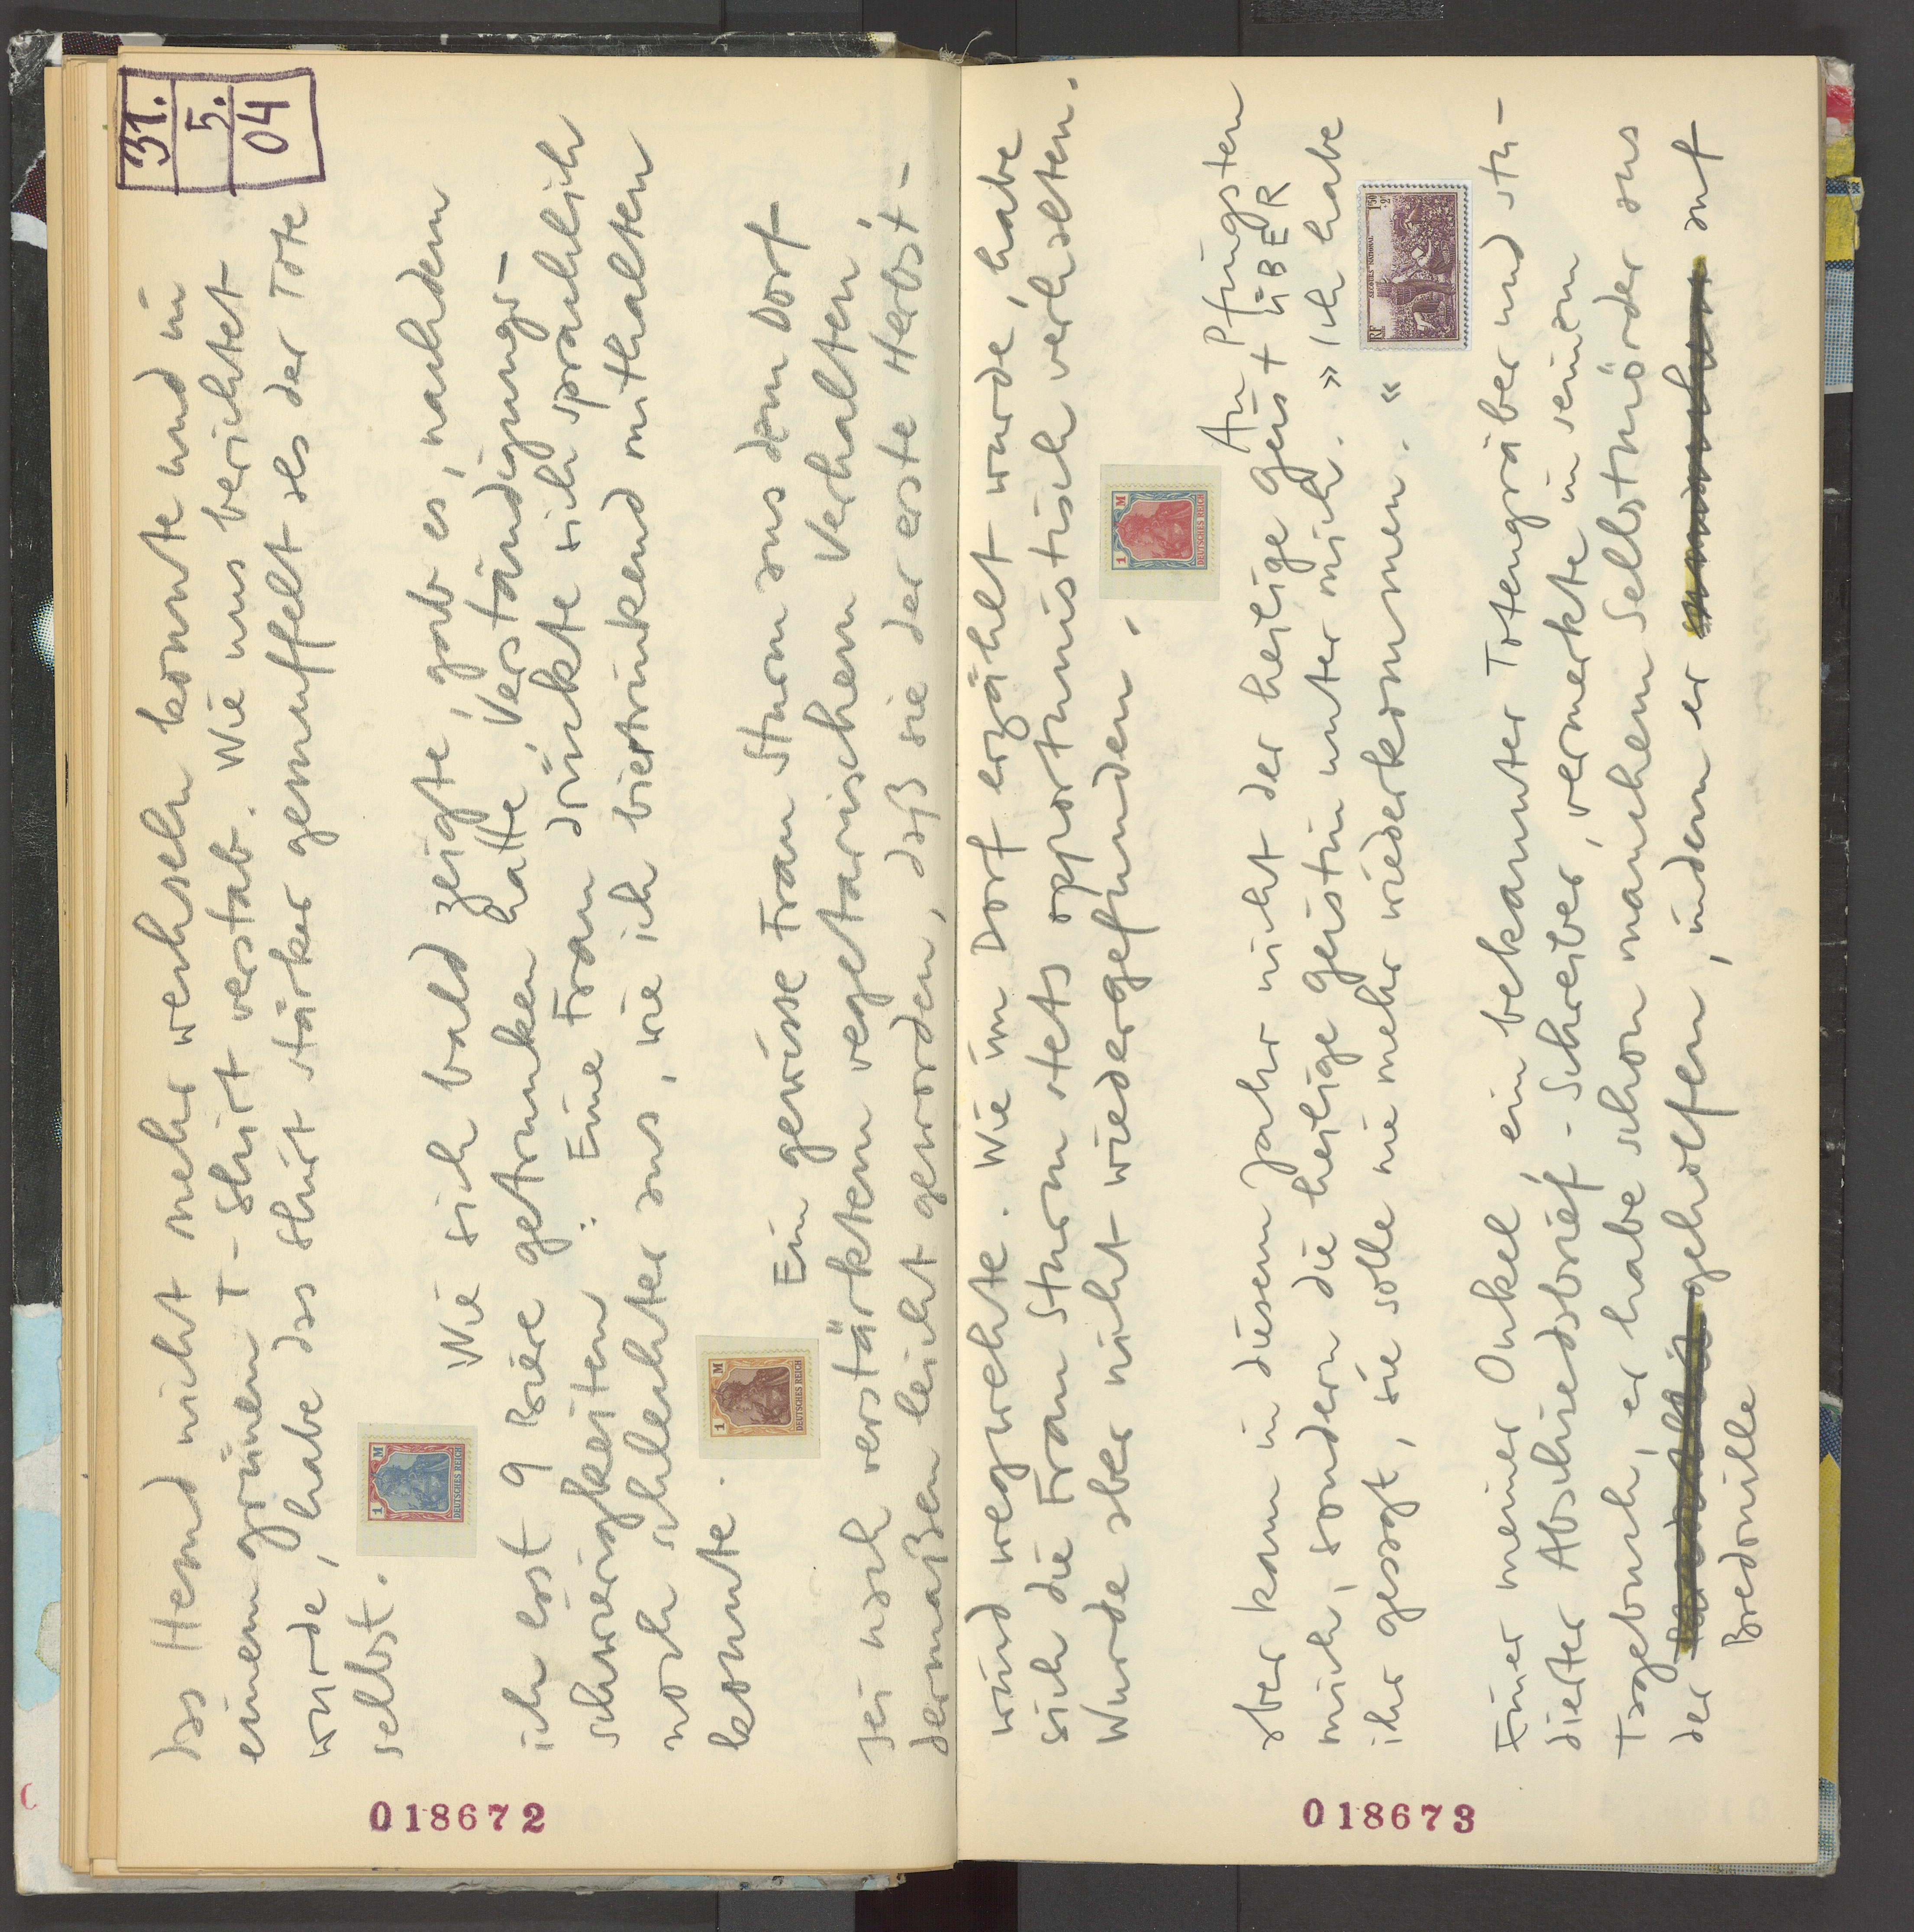 31.
5.
04
das Hemd nicht mehr wechseln konnte und in
einem grünen T-Shirt verstab. Wie uns berichtet
wurde, habe das Shirt stärker gemuffelt als der Tote
selbst.
1 M
DEUTSCHES REICH
Wie sich bald zeigte, gab es, nachdem
ich erst 9 Biere getrunken hatte, Verständigungs-
schwierigkeiten: Eine Frau drückte sich sprachlich
noch schlechter aus, wie ich biertrinkend mithalten
konnte.
1 M
DEUTSCHES REICH
Ein gewisse Frau Sturm aus dem Dorf
sei nach verstärktem vegetarischem Verhalten,
dermaßen leicht geworden, daß sie der erste Herbst-
018672
wind wegwehte. Wie im Dorf erzählt wurde, habe
sich die Frau Sturm stets opportunistisch verhalten.
Wurde aber nicht wiedergefunden.
1 M
DEUTSCHES REICH
An Pfingsten
aber kam in diesem Jahr nicht der heilige Geist ÜBER
mich, sondern die heilige Geistin unter mich. »Ich habe
ihr gesagt, sie solle nie mehr wiederkommen.«
RF
1F50
+2F
Einer meiner Onkel, ein bekannter Totengräber und stu-
dierter Abschiedsbrief-Schreiber, vermerkte in seinem
Tagebuch, er habe schon manchem Selbstmörder aus
der geholfen, indem er auf
Bredouille
018673